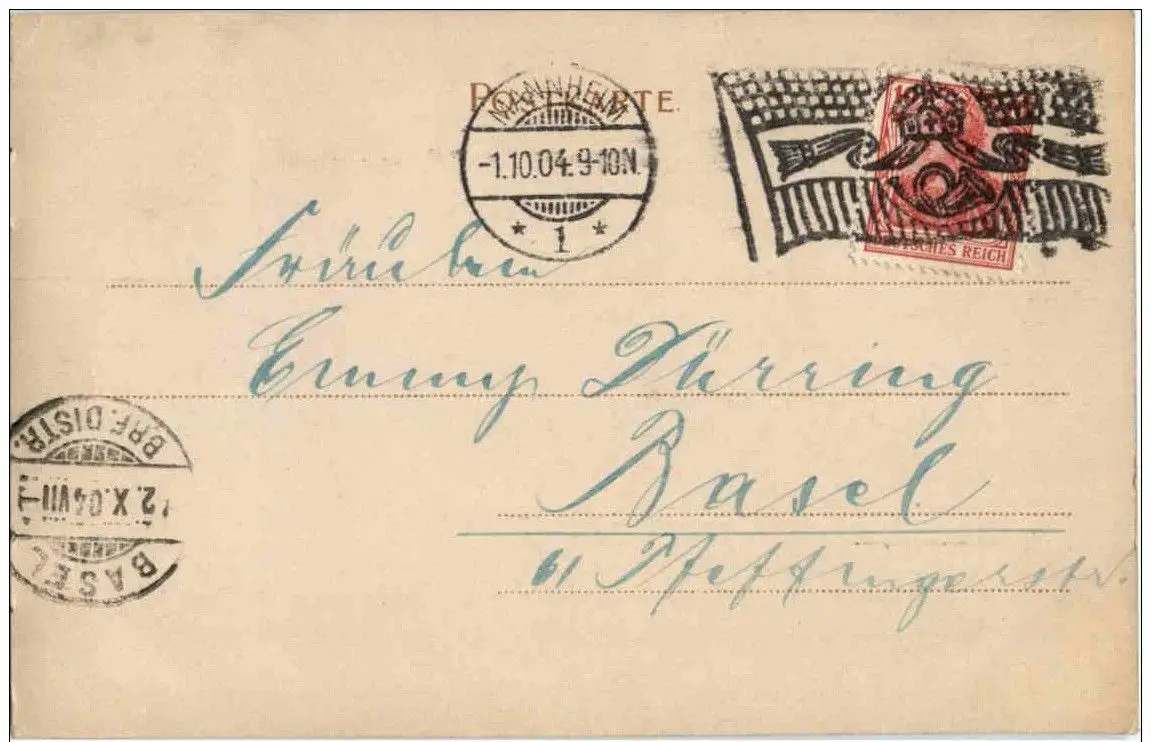 POSTKARTE.
MANNHEIM
-1.10.04. 9-10N.
* 1 *
DEUTSCHES REICH
Fräulein
Emmy Dürring
Basel
61 Pfeffingerstr.
BASEL
2.X.04 VII
BRF. DISTR.